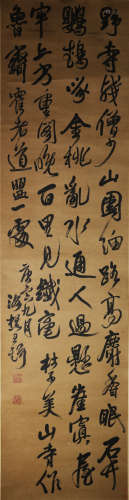 野寺殘僧少山園細路高麝香眠石竹
鸚鵡啄金桃亂水通人過懸崖置屋
牢上方重閣晚百里見纖毫杜子美山寺作
魯齋霍老道盟
庚寅九月
王鐸